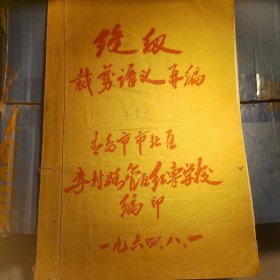 缝纫
裁剪讲义再编
青岛市市北区
李村路管区红专学校
编印
一九六四、八、一